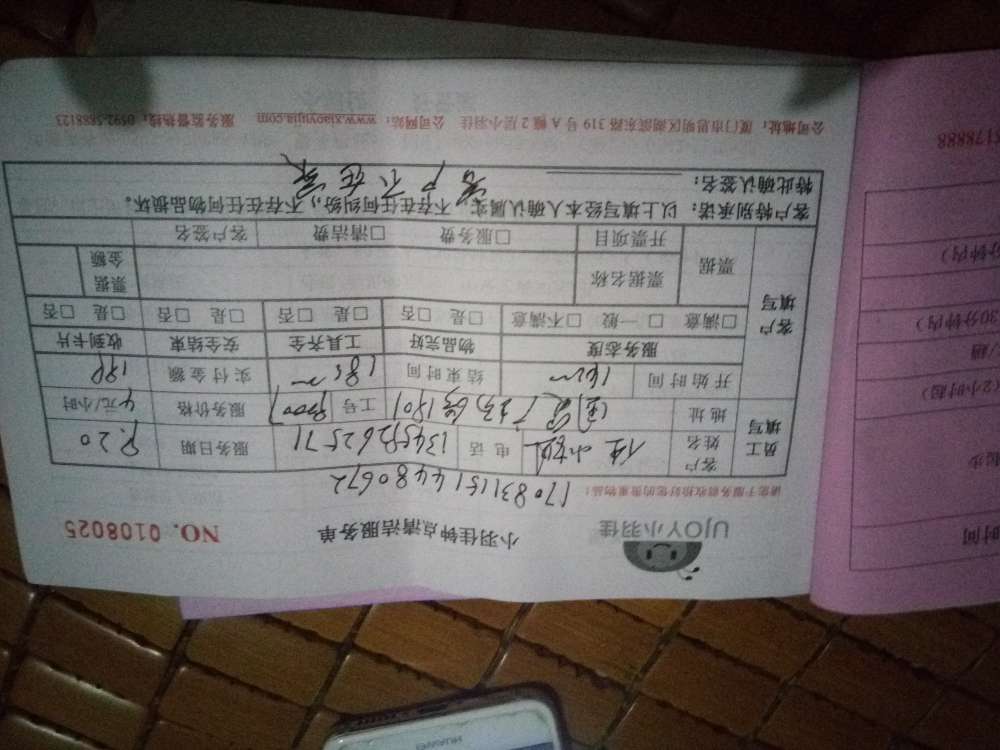 UJOY小羽佳
小羽佳钟点清洁服务单
NO. 0108025
请您于服务前收拾您的贵重物品:
17083115144480672
员工填写
客户姓名
电话
服务日期 9.20
地址 1801
工号
服务价格 元/小时
开始时间
结束时间
实付金额
客户填写
服务态度 物品完好 工具齐全 安全结束 收到卡片
□满意 □一般 □不满意 □是 □否 □是 □否 □是 □否 □是 □否
票据
票据名称
票据金额
开票项目 □服务费 □清洁费 客户签名
客户特别承诺:以上填写经本人确认属实,不存在任何纠纷,不存在任何物品损坏。
特此确认签名: 客户不在家
公司地址:厦门市思明区湖滨东路319号A幢2层小羽佳 公司网站:www.xiaoyujia.com 服务监督热线:0592-5888123
时间
起步
2小时起)
/趟
30分钟内)
分钟内)
178888
HUAWEI